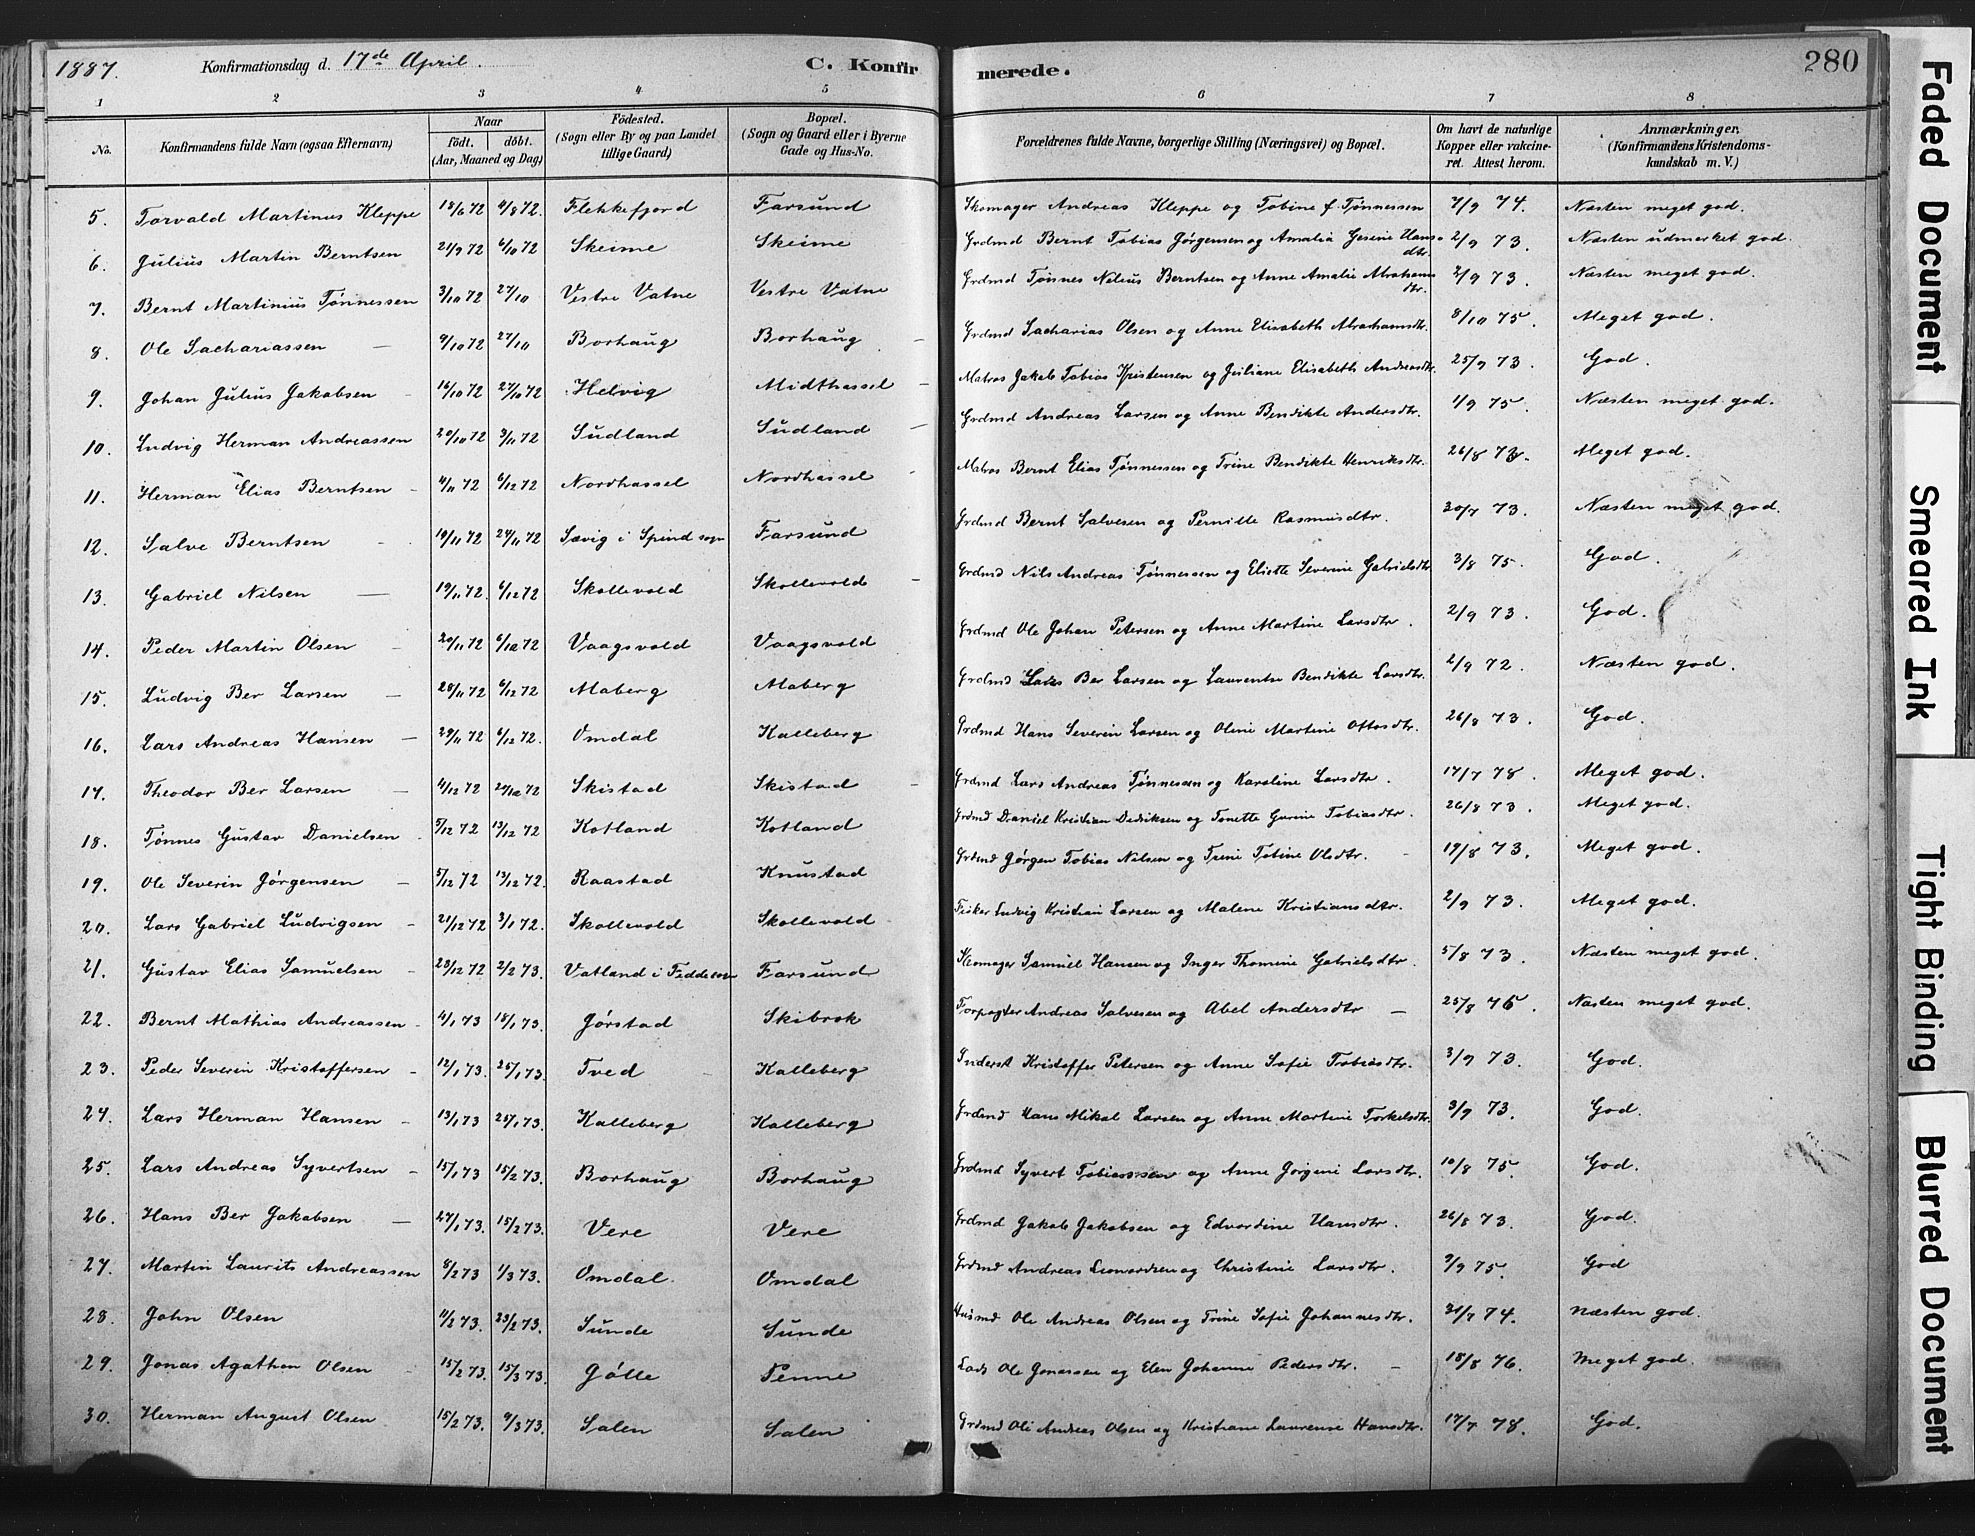 1887. Konfirmationsdag d. 17de April. C. Konfirmerede. 280
1 2 3 4 5 6 7 8
No. Konfirmandens fulde Navn (ogsaa Efternavn) Naar født. døbt. (Aar, Maaned og Dag) Fødested. (Sogn eller By og paa Landet tillige Gaard) Bopæl. (Sogn og Gaard eller i Byerne Gade og Hus-No. Forældrenes fulde Navne, borgerlige Stilling (Næringsvei) og Bopæl. Om havt de naturlige Kopper eller vakcineret. Attest herom. Anmærkninger. (Konfirmandens Kristendomskundskab m. V.)
5. Torvald Martinus Kleppe 18/6 72 4/8 72. Flekkefjord Farsund Skomager Andreas Kleppe og Tobine f. Tønnessen 7/9 74. Næsten meget god.
6. Julius Martin Berntsen 21/9 72 6/10 72 Skeime Skeime Grdmd Bernt Tobias Jørgensen og Amalia Gesine Hansdtr. 2/9 73. Næsten udmerket god.
7. Bernt Martinius Tønnessen 3/10 72 27/10 Vestre Vatne Vestre Vatne Grdmd Tønnes Nilius Berntsen og Anne Amalie Abrahamsdtr. 2/9 73. Næsten meget god.
8. Ole Sachariassen 9/10 72 27/10 Borhaug Borhaug Grdmd Sacharias Olsen og Anne Elisabeth Abrahamsdtr. 8/10 75. Meget god.
9. Johan Julius Jakobsen 16/10 72 27/10 72 Helvig Midthassel Matros Jakob Tobias Kristensen og Juliane Elisabeth Andreasdtr. 25/9 73. God.
10. Ludvig Herman Andreassen 20/10 72 3/11 72 Sudland Sudland Grdmd Andreas Larsen og Anne Bendikte Andersdtr. 1/9 75. Næsten meget god.
11. Herman Elias Berntsen 4/11 72 6/12 72 Nordhassel Nordhassel Matros Bernt Elias Tønnessen og Trine Bendikte Henriksdtr. 26/8 73. Meget god.
12. Salve Berntsen 10/11 72 24/11 72 Sævig i Spind sogn Farsund Grdmd Bernt Salvesen og Pernille Rasmusdtr. 20/7 73. Næsten meget god.
13. Gabriel Nilsen 19/11 72. 6/12 72 Skollevold Skollevold Grdmd Nils Andreas Tønnessen og Eliette Severine Gabrielsdtr 3/8 75. God.
14. Peder Martin Olsen 20/11 72 6/12 72 Vaagsvold Vaagsvold Grdmd Ole Johan Petersen og Anne Martine Larsdtr. 2/9 73. God.
15. Ludvig Ber Larsen 28/11 72 6/12 72 Maberg Maberg Grdmd Lars Ber Larsen og Laurentse Bendikte Larsdtr. 2/9 72. Næsten god.
16. Lars Andreas Hansen 29/11 72 6/12 72. Omdal Kalleberg Grdmd Hans Severin Larsen og Oline Martine Ottosdtr. 26/8 73. God.
17. Theodor Ber Larsen 4/12 72 27/12 72 Skistad Skistad Grdmd Lars Andreas Tønnessen og Karoline Larsdtr. 17/7 78. Meget god.
18. Tønnes Gustav Danielsen 5/12 72 13/12 72 Kotland Kotland Grdmd Daniel Kristian Dediksen og Tonette Gurine Tobiasdtr. 26/8 73. Meget god.
19. Ole Severin Jørgensen 5/12 72 13/12 72. Raastad Knustad Grdmd Jørgen Tobias Nilsen og Trine Tobine Olsdtr. 19/8 73. Meget god.
20. Lars Gabriel Ludvigsen 21/12 72 3/1 72. Skollevold Skollevold Fisker Ludvig Kristian Larsen og Malene Kristiansdtr. 2/9 73. Meget god.
21. Gustav Elias Samuelsen 23/12 72 2/2 73. Vatland i Feddesogn Farsund Skomager Samuel Hansen og Inger Thomine Gabrielsdtr. 5/8 73. Næsten meget god.
22. Bernt Mathias Andreassen 4/1 73 18/1 73. Gørstad Skibrok Forpagter Andreas Salvesen og Abel Andersdtr 25/8 76. Næsten meget god.
23. Peder Severin Kristoffersen 12/1 73 25/1 73. Tved Kalleberg Inderst Kristoffer Petersen og Anne Sofie Tobiasdtr. 3/9 73. God.
24. Lars Herman Hansen 13/1 73 25/1 73. Kalleberg Kalleberg Grdmd Hans Mikal Larsen og Anne Martine Torkelsdtr. 3/9 73. God.
25. Lars Andreas Syvertsen 15/1 73 15/2 73. Borhaug Borhaug Grdmd Syvert Tobiassen og Anne Jorgine Larsdtr. 10/8 75. God.
26. Hans Ber Jakobsen 27/1 73. 15/2 73. Vere Vere Grdmd Jakob Jakobsen og Edvardine Hansdtr. 26/8 73. God.
27. Martin Laurits Andreassen 8/2 73 1/3 73. Omdal. Omdal Grdmd Andreas Leonardsen og Christine Larsdtr. 9/9 75. God
28. John Olsen 11/2 73. 23/2 73. Sunde Sunde Husmd Ole Andreas Olsen og Trine Sofie Johannesdtr. 31/7 74. Næsten god.
29. Jonas Agathon Olsen 15/2 73. 15/3 73. Gølle Penne Lods Ole Jonassen og Elen Johanne Pedersdtr. 18/8 76. Meget god.
30. Herman August Olsen 15/2 73. 9/3 73. Salen Salen Grdmd Ole Andreas Olsen og Kristiane Laurense Hansdtr. 17/7 78. God.
Faded Document
Smeared Ink
Tight Binding
Blurred Document